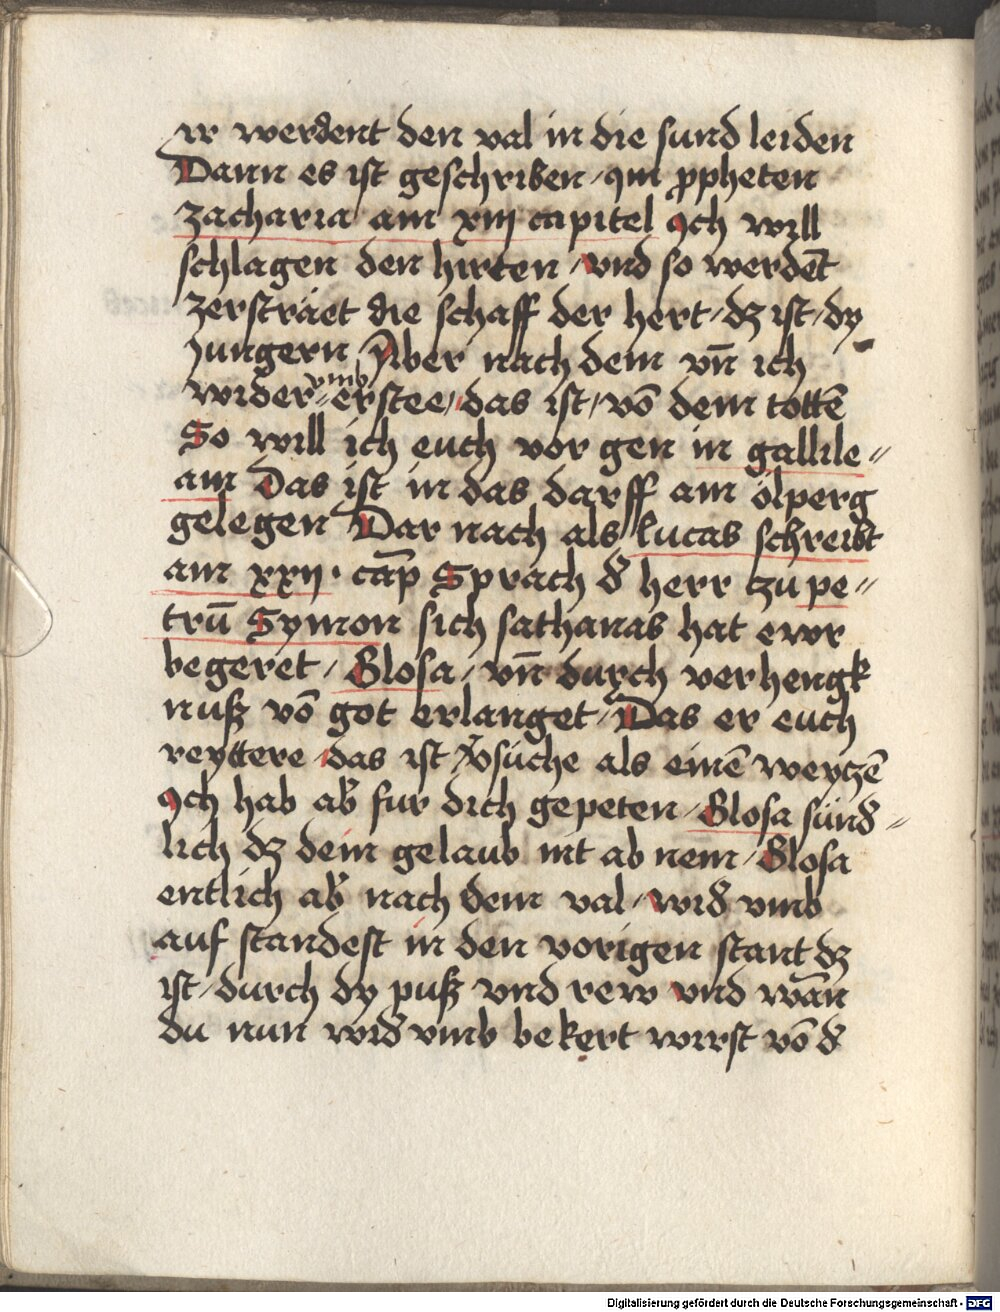 ir werdent den val in die sund leiden
Dann es ist geschriben / Im ppheten
zacharia am xiij capitel Ich will
schlagen den hirten / vnd so werdēt
zersträet die schaff der hert / dz ist / dy
Jungern / Aber nach dem vn̄ ich
wider vmb erstee / das ist / vō dem tottē
So will ich euch vor gen in gallile〃
am Das ist in das darff am ölperg
gelegen Dar nach als lucas schreibt
am xxij · cap̄ Sprach d̕ herr zu pe〃
trū Symon sich sathanas hat ewr
begeret / Glosa / vn̄ durch verhengk
nuß vō got erlanget / Das er euch
reyttere / das ist v̕süche als einē weyczē
Ich hab ab̕ fur dich gepeten / Glosa sünd̕〃
lich dz dein gelaub nit ab nem / Glosa
entlich ab̕ nach dem val / wid̕ vmb
auf standest in den vorigen stant dz
ist / durch dy puß vnd rew vnd wān
du nun wid̕ vmb bekert wirst vō d̕
Digitalisierung gefördert durch die Deutsche Forschungsgemeinschaft - DFG